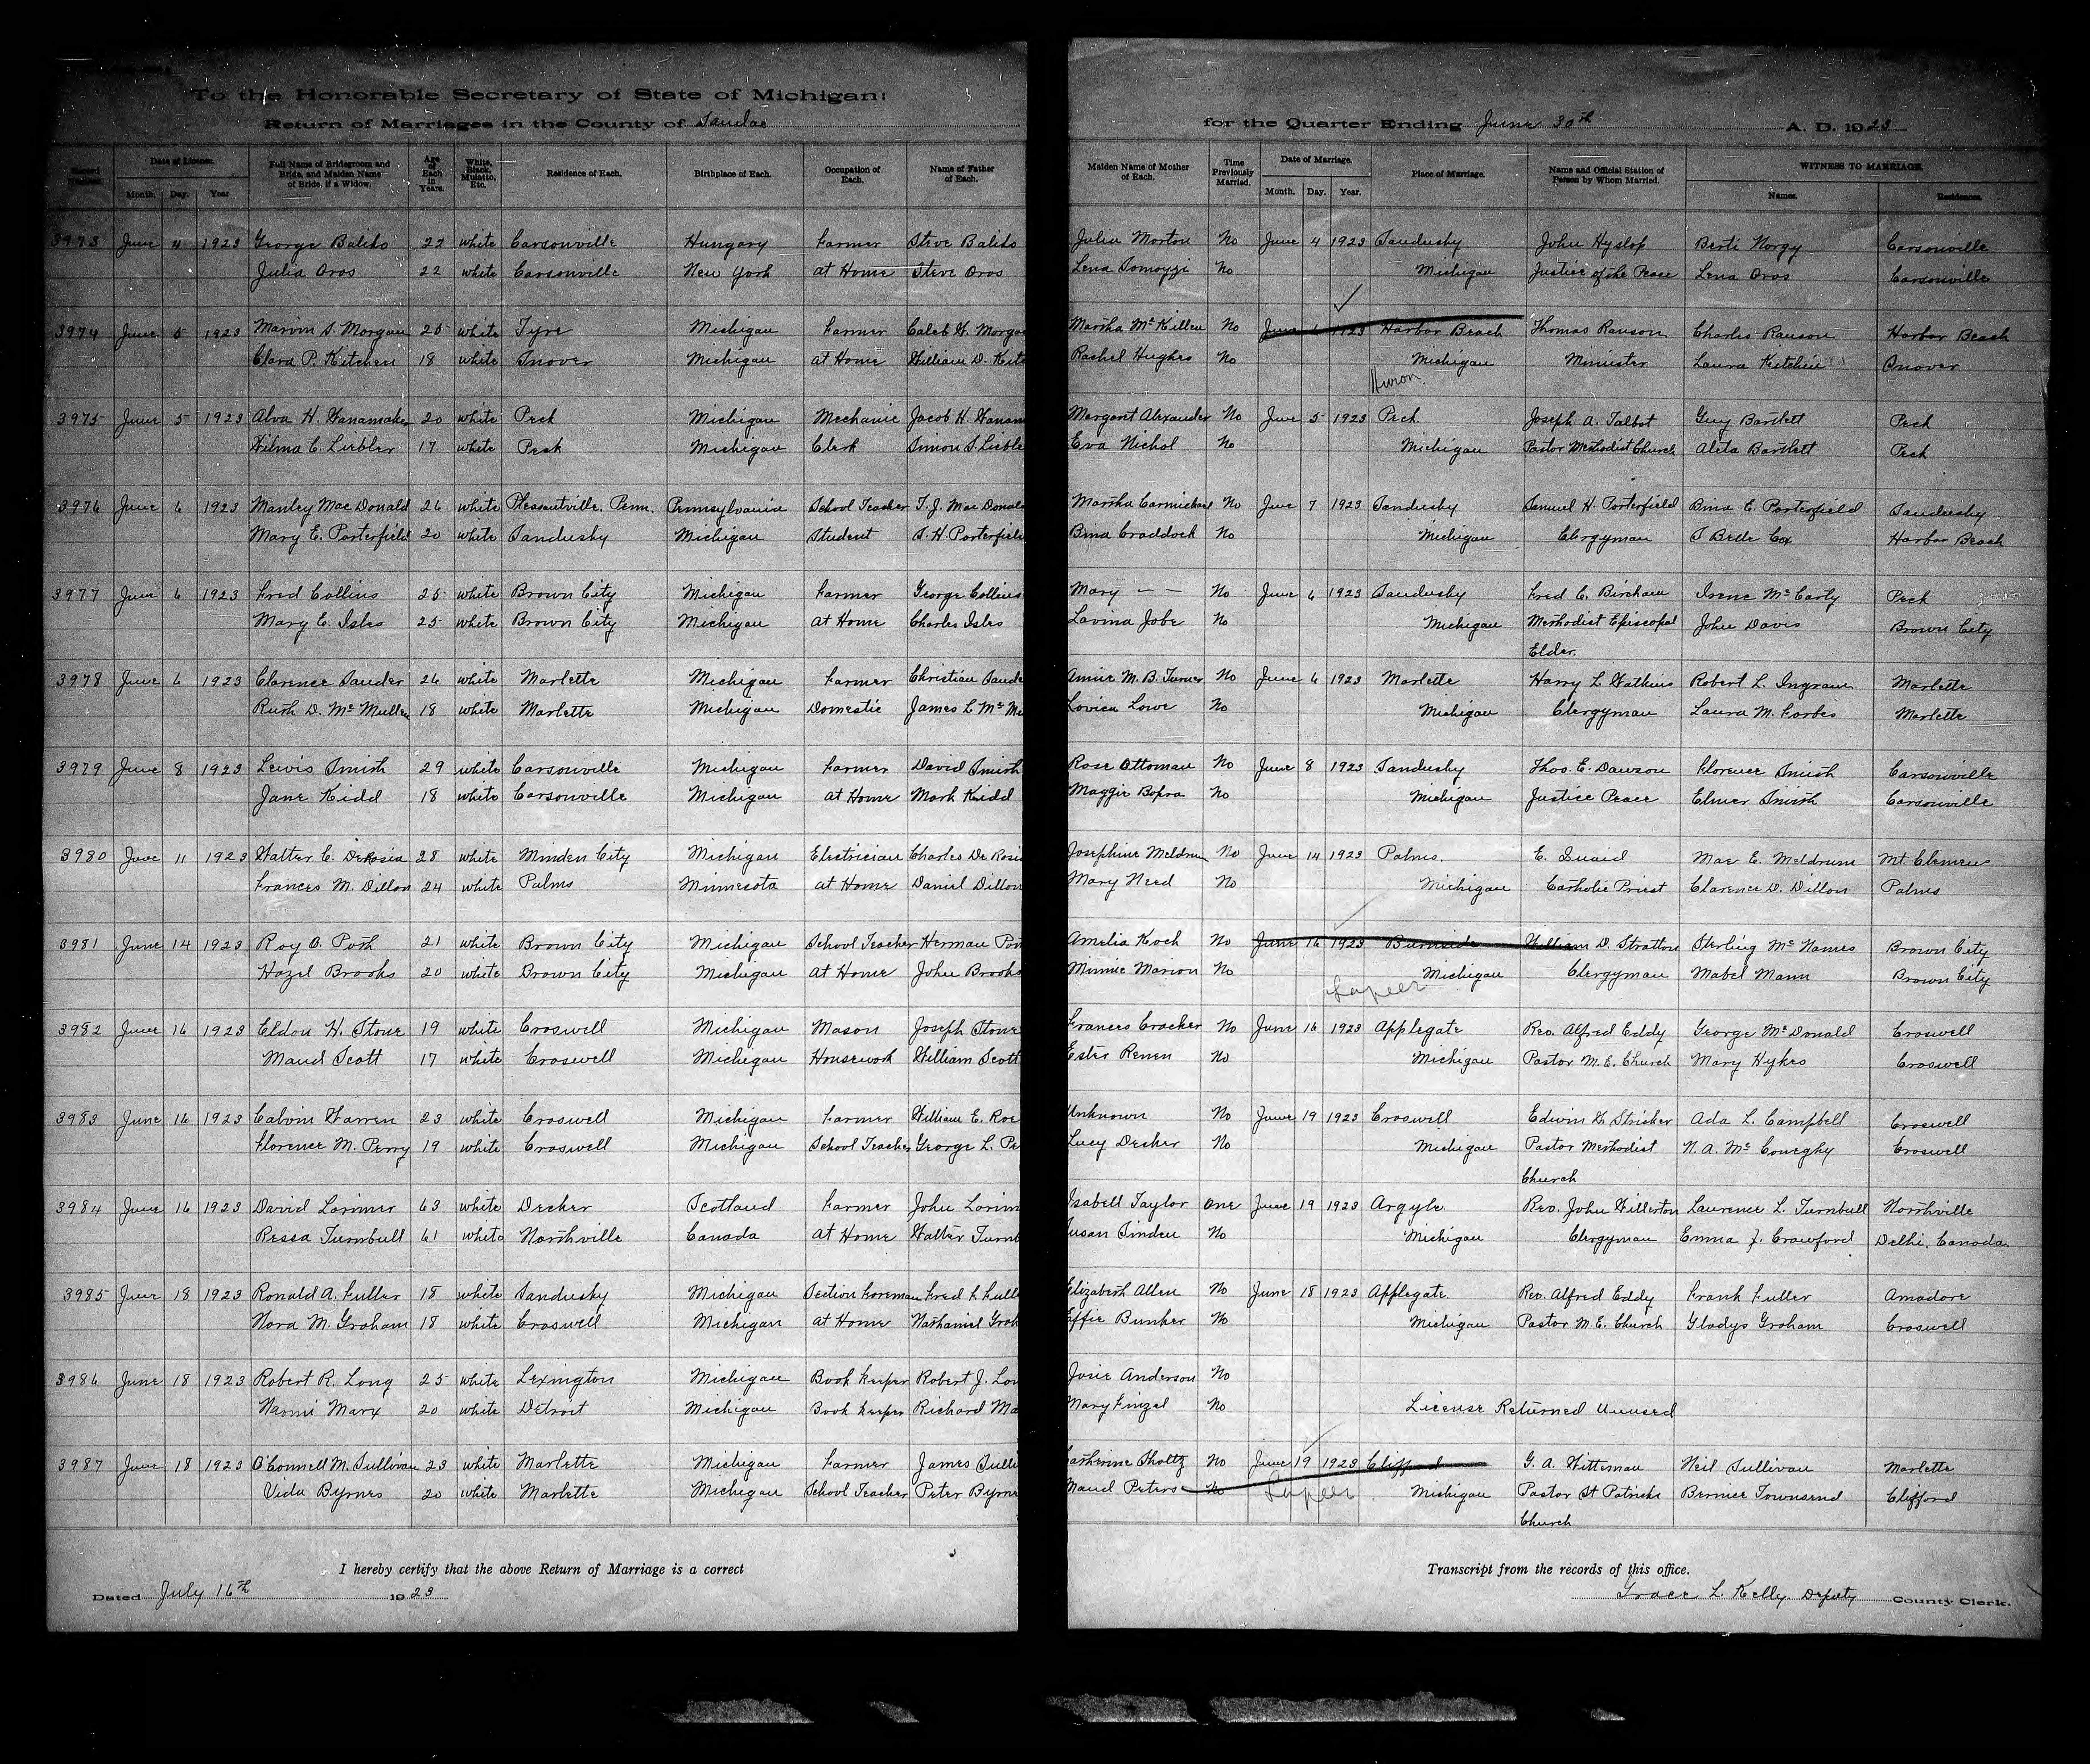 To the Honorable Secretary of State of Michigan:
Return of Marriages in the County of Sanilac for the Quarter Ending June 30th A. D. 1923
Record Number. Date of License. Month. Day. Year Full Name of Bridegroom and Bride, and Maiden Name of Bride, if a Widow. Age of Each in Years. White, Black, Mulatto, Etc. Residence of Each. Birthplace of Each. Occupation of Each. Name of Father of Each. Maiden Name of Mother of Each. Time Previously Married. Date of Marriage. Month. Day. Year. Place of Marriage. Name and Official Station of Person by Whom Married. WITNESS TO MARRIAGE. Names. Residences.
3973 June 4 1923 George Balito 22 white Carsonville Hungary Farmer Steve Balito Julia Morton No June 4 1923 Sandusky John Hyslop Berti Norgy Carsonville
Julia Oros 22 white Carsonville New York at Home Steve Oros Lena No Michigan Justice of the Peace Lena Oros Carsonville
3974 June 5 1923 Marvin S. Morgan 25 white Tyre Michigan Farmer Caleb W. Morgan Martha McKillen No June 6 1923 Harbor Beach Thomas Ranson Charles Ranson Harbor Beach
Clara P. Kitchen 18 white Snover Michigan at Home William D. Kitc Rachel Hughes No Michigan Minister Laura Kitchen Snover
Huron.
3975 June 5 1923 Alva H. Wanamaker 20 white Peck Michigan Mechanic Jacob H. Wanam Margaret Alexander No June 5 1923 Peck. Joseph A. Talbot Guy Bartlett Peck
Wilma C. Liebler 17 white Peck Michigan Clerk Simon S. Lieble Eva Nichol No Michigan Pastor Methodist Church Aleta Bartlett Peck
3976 June 6 1923 Manley MacDonald 26 white Pleasantville, Penn. Pennsylvania School Teacher T. J. MacDonald Martha Carmichael No June 7 1923 Sandusky Samuel H. Porterfield Bina E. Porterfield Sandusky
Mary E. Porterfield 20 white Sandusky Michigan Student S. H. Porterfield Bina Craddock No Michigan Clergyman S Belle Cox Harbor Beach
3977 June 6 1923 Fred Collins 25 white Brown City Michigan Farmer George Collins Mary — — No June 6 1923 Sandusky Fred C. Bircham Irene McCarty Peck
Mary E. Isles 25 white Brown City Michigan at Home Charles Isles Lavina Jobe No Michigan Methodist Episcopal John Davis Brown City
Elder.
3978 June 6 1923 Clarence Sauder 26 white Marlette Michigan Farmer Christian Saude Annie M. B. Turner No June 6 1923 Marlette Harry L. Watkins Robert L. Ingram Marlette
Ruth D. McMullen 18 white Marlette Michigan Domestic James L. McMu Lovica Lowe No Michigan Clergyman Laura M. Forbes Marlette
3979 June 8 1923 Lewis Smith 29 white Carsonville Michigan Farmer David Smith Rose Ottoman No June 8 1923 Sandusky Thos. E. Dawson Florence Smith Carsonville
Jane Kidd 18 white Carsonville Michigan at Home Mark Kidd Maggie Bopra No Michigan Justice Peace Elmer Smith Carsonville
3980 June 11 1923 Walter C. DeRosia 28 white Minden City Michigan Electrician Charles DeRosia Josephine Meldrum No June 14 1923 Palms. E. Quaid Mae E. Meldrum Mt. Clemens
Frances M. Dillon 24 white Palms Minnesota at Home Daniel Dillon Mary Need No Michigan Catholic Priest Clarence D. Dillon Palms
3981 June 14 1923 Roy O. Posh 21 white Brown City Michigan School Teacher Herman Pos Amelia Koch No June 16 1923 Burnside William D. Stratton Sterling McNames Brown City
Hazel Brooks 20 white Brown City Michigan at Home John Brooks Minnie Marion No Michigan Clergyman Mabel Mann Brown City
Lapeer
3982 June 16 1923 Eldon H. Stone 19 white Croswell Michigan Mason Joseph Stone Frances Cracker No June 16 1923 Applegate Rev. Alfred Eddy George McDonald Croswell
Maud Scott 17 white Croswell Michigan Housework William Scott Ester Renen No Michigan Pastor M. E. Church Mary Hykes Croswell
3983 June 16 1923 Calvin Warren 23 white Croswell Michigan Farmer William E. Roe Unknown No June 19 1923 Croswell Edwin W. Stricker Ada L. Campbell Croswell
Florence M. Perry 19 white Croswell Michigan School Teacher George L. Pe Lucy Decker No Michigan Pastor Methodist N. A. McConeghy Croswell
Church
3984 June 16 1923 David Lorimer 63 white Decker Scotland Farmer John Lorim Isabell Taylor one June 19 1923 Argyle Rev. John Willerton Laurence L. Turnbull Northville
Ressa Turnbull 61 white Northville Canada at Home Walter Turnb Susan Sinden No Michigan Clergyman Emma J. Crawford Delhi, Canada.
3985 June 18 1923 Ronald A. Fuller 18 white Sandusky Michigan Section Foreman Fred F. Full Elizabeth Allen No June 18 1923 Applegate. Rev. Alfred Eddy Frank Fuller Amadore
Nora M. Graham 18 white Croswell Michigan at Home Nathaniel Grah Effie Bunker No Michigan Pastor M. E. Church Gladys Graham Croswell
3986 June 18 1923 Robert R. Long 25 white Lexington Michigan Book keeper Robert J. Lon Josie Anderson No
Naomi Marx 20 white Detroit Michigan Book keeper Richard Ma Mary Finzel No License Returned Unused
3987 June 18 1923 O'Connell M. Sullivan 23 white Marlette Michigan Farmer James Sulli Catherine Sholtz No June 19 1923 Clifford G. A. Witteman Neil Sullivan Marlette
Vida Byrnes 20 white Marlette Michigan School Teacher Peter Byrne Maud Peters No Lapeer. Michigan Pastor St Patricks Bernice Townsend Clifford
Church
I hereby certify that the above Return of Marriage is a correct Transcript from the records of this office.
Dated July 16th 1923 Grace L. Kelly Deputy County Clerk.